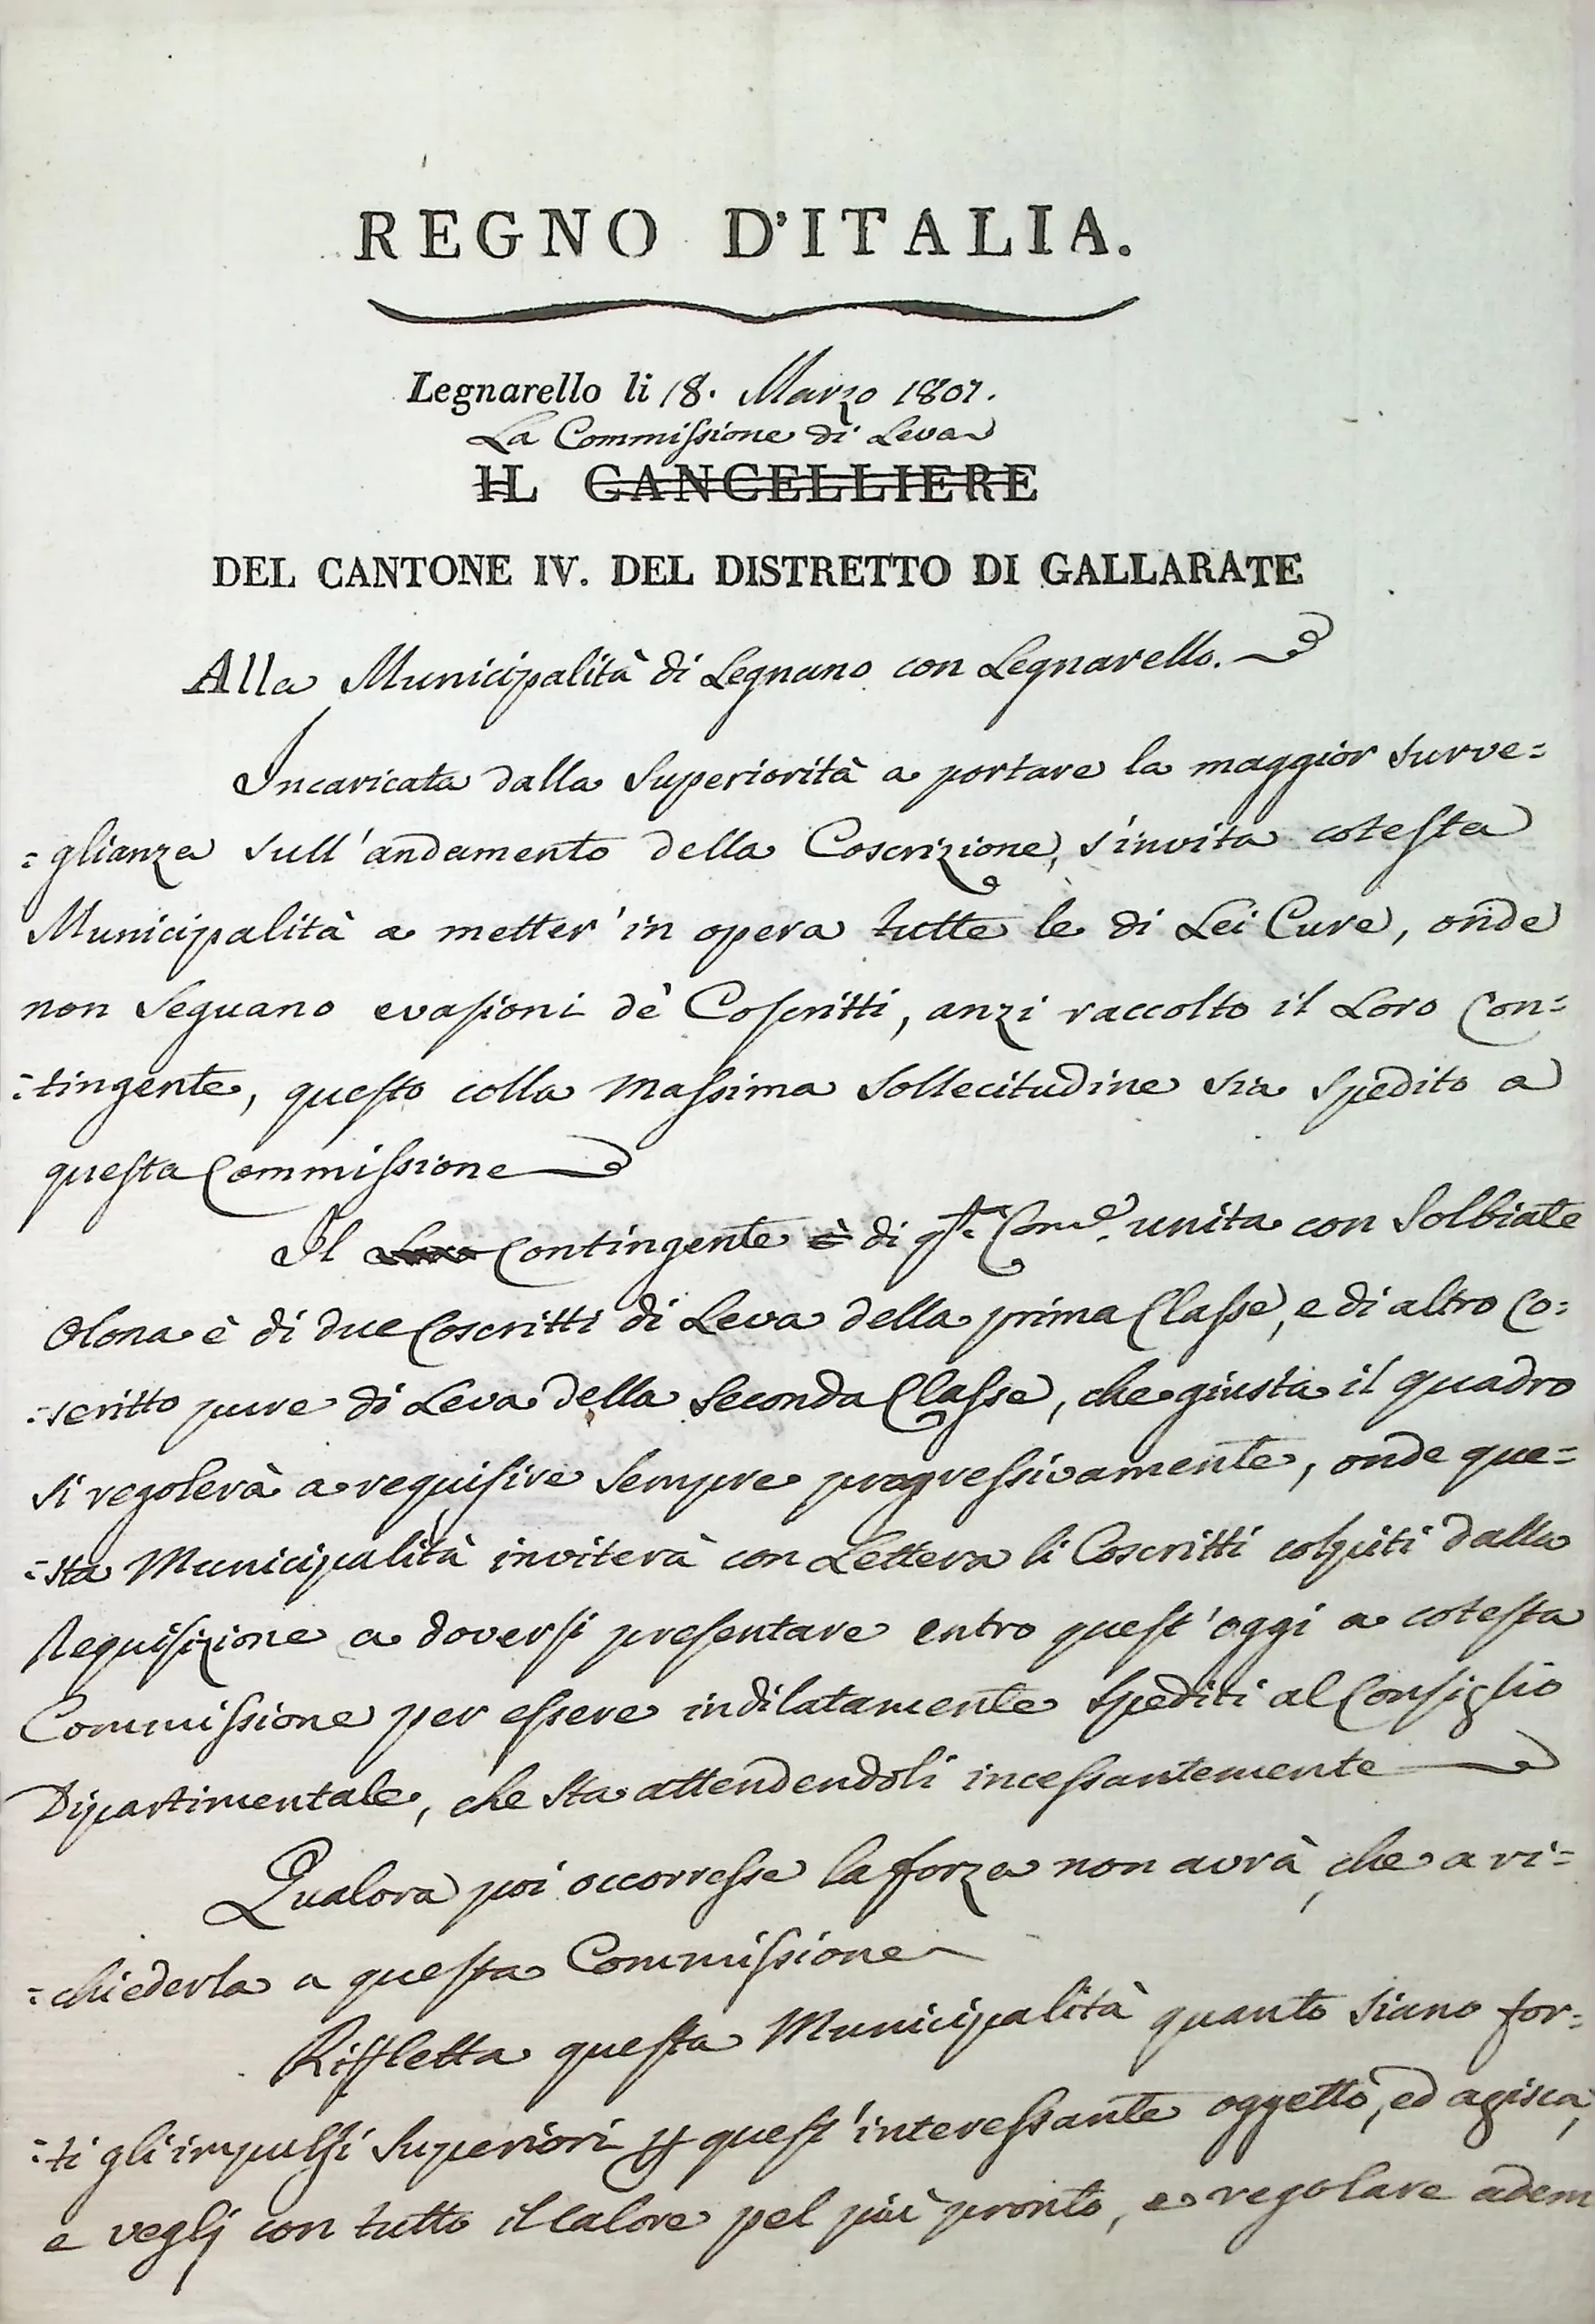 REGNO D'ITALIA.
Legnarello li 18. Marzo 1807.
La Commissione di Leva
IL CANCELLIERE
DEL CANTONE IV. DEL DISTRETTO DI GALLARATE
Alla Municipalità di Legnano con Legnarello.
Incaricata dalla Superiorità a portare la maggior surve=
=glianza sull'andamento della Coscrizione, s'invita cotesta
Municipalità a metter'in opera tutte le di Lei Cure, onde
non seguano evasioni de' Coscritti, anzi raccolto il Loro Con=
=tingente, questo colla Massima Sollecitudine sia spedito a
questa Commissione
Il Contingente è di qta. Cone. unita con Solbiate
Olona è di due Coscritti di Leva della prima Classe, e di altro Co=
=scritto pure di Leva della Seconda Classe, che giusta il quadro
si regolerà a requisire sempre progressivamente, onde que=
=sta Municipalità inviterà con Lettera li Coscritti colpiti dalla
Requisizione a doversi presentare entro quest'oggi a cotesta
Commissione per essere indilatamente spediti al Consiglio
Dipartimentale, che sta attendendoli incessantemente
Qualora poi occorresse la forza non avrà, che a ri=
=chiederla a questa Commissione
Riffletta questa Municipalità quanto siano for=
=ti gli impulsi Superiori p quest'interessante oggetto, ed agisca,
e veglj con tutto il Calore pel più pronto, e regolare adem